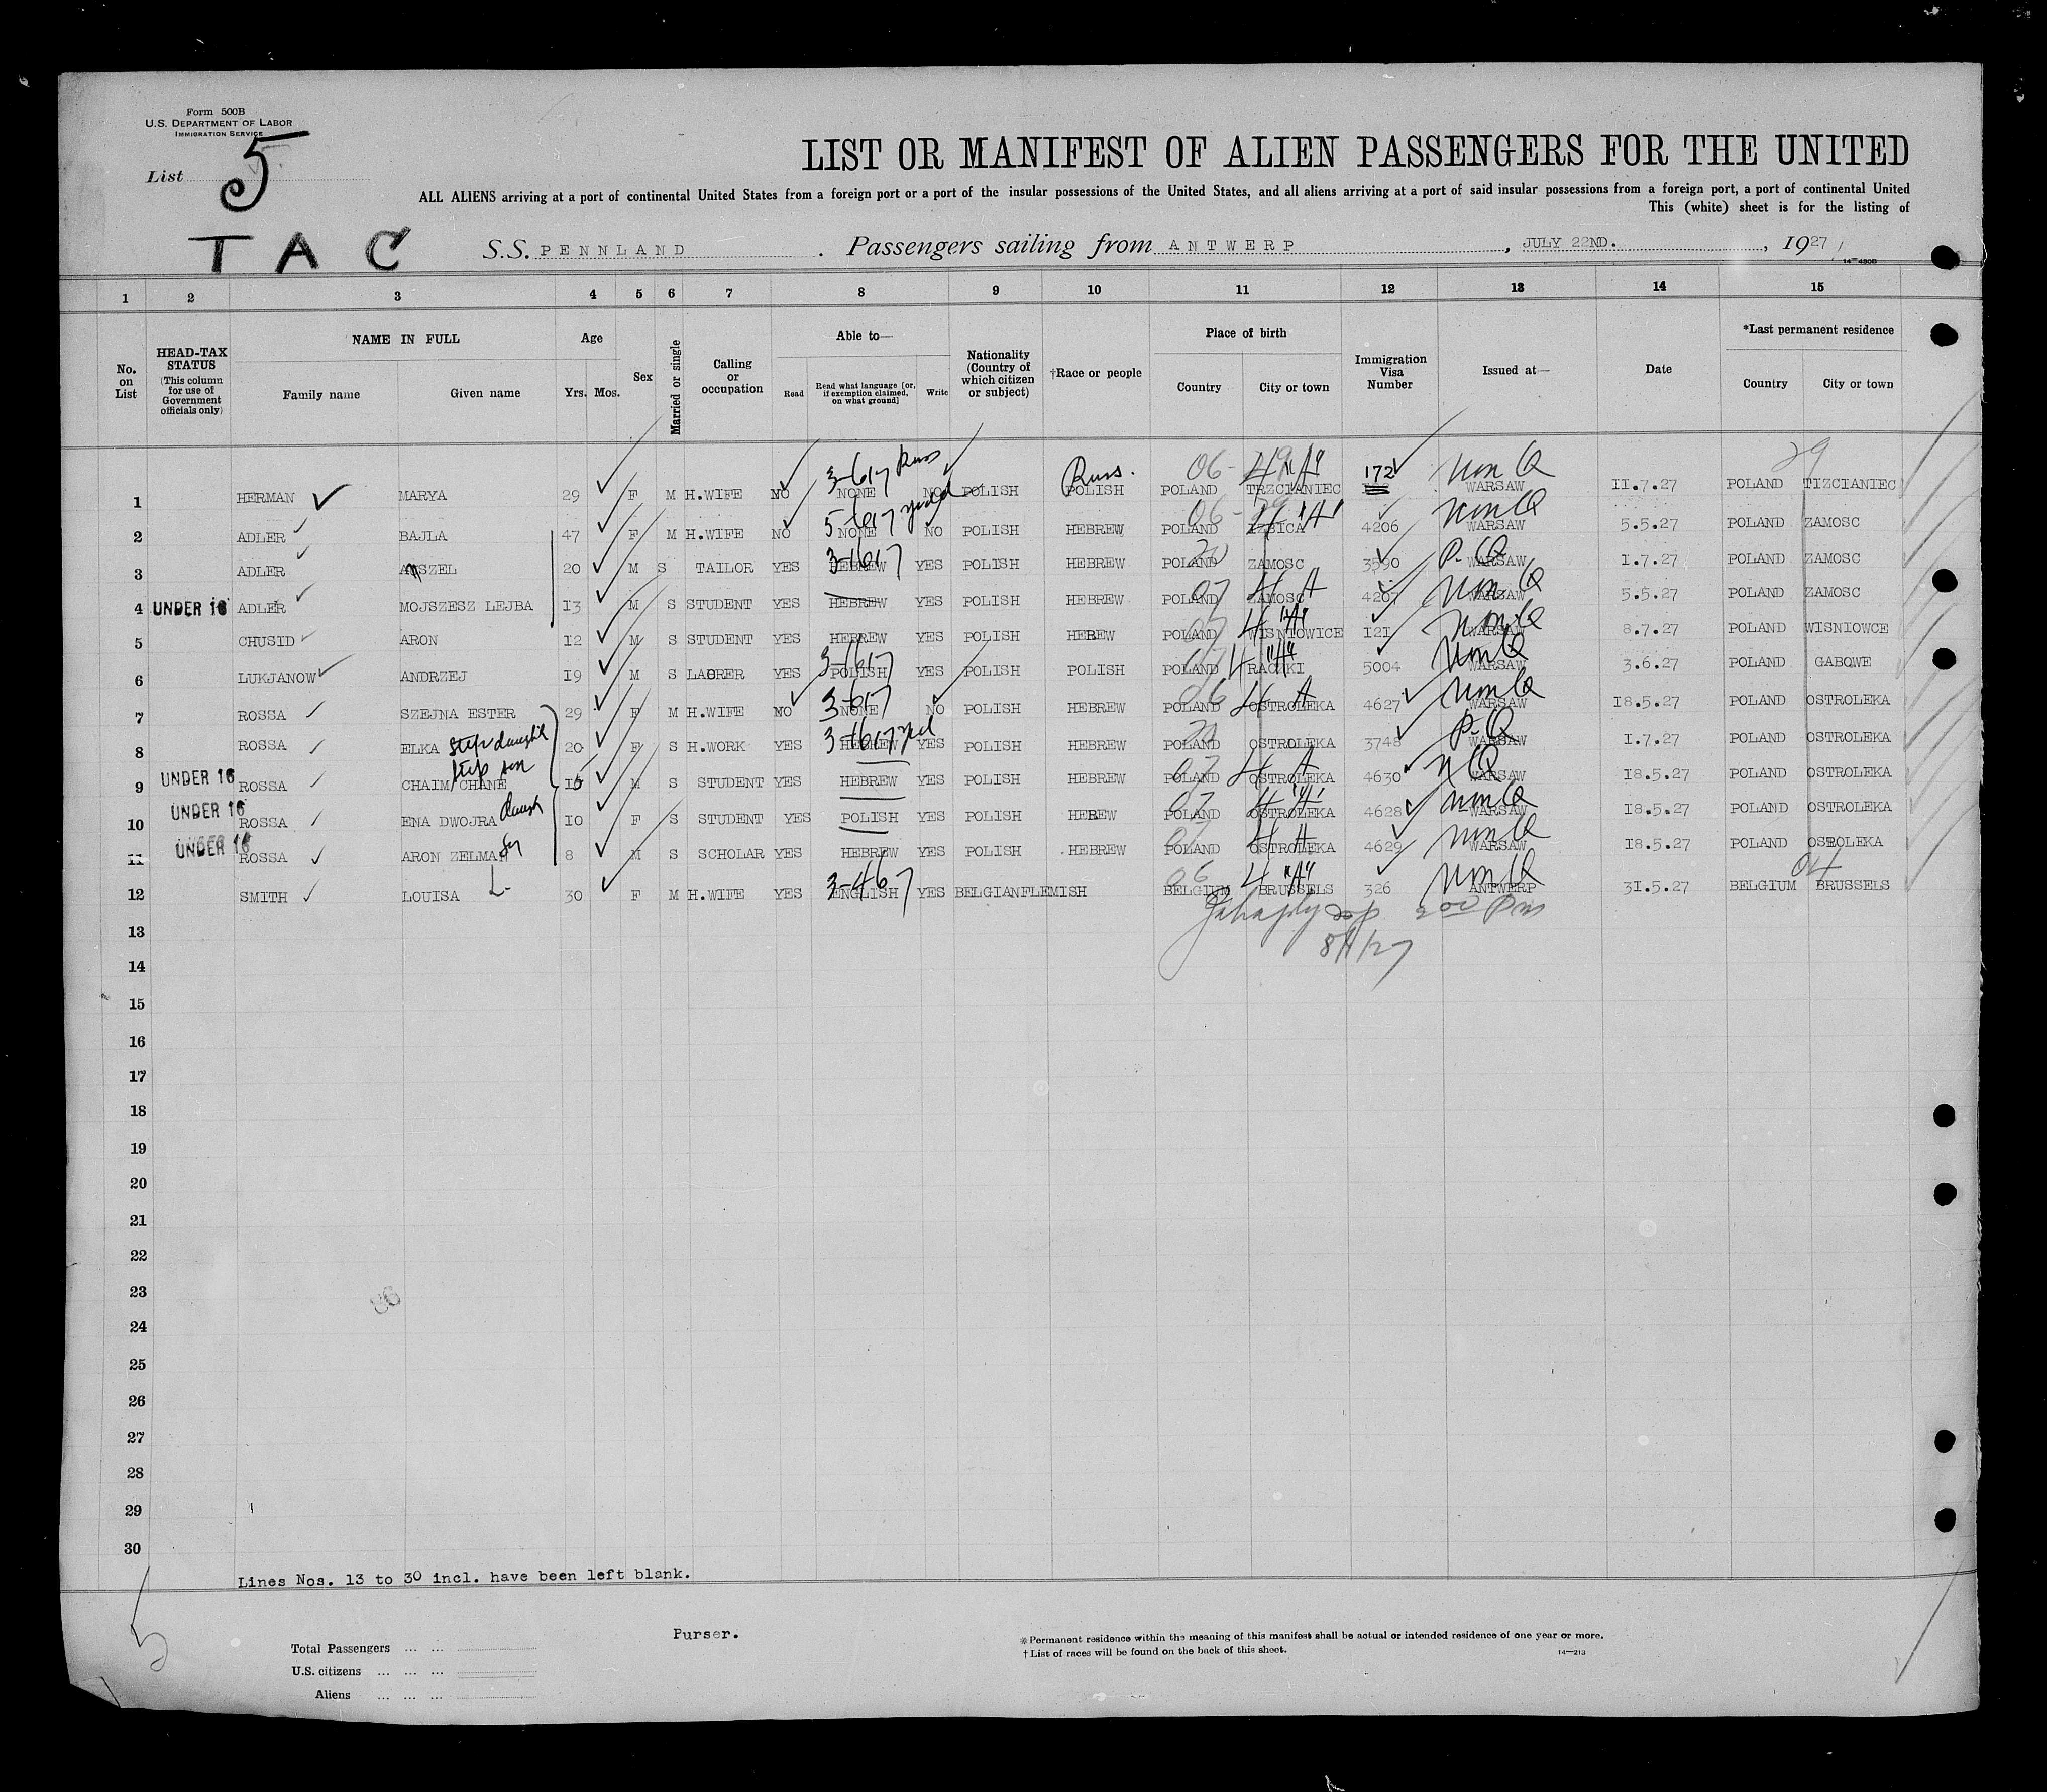 Form 500B
U.S. DEPARTMENT OF LABOR
IMMIGRATION SERVICE
List 5
LIST OR MANIFEST OF ALIEN PASSENGERS FOR THE UNITED
ALL ALIENS arriving at a port of continental United States from a foreign port or a port of the insular possessions of the United States, and all aliens arriving at a port of said insular possessions from a foreign port, a port of continental United
This (white) sheet is for the listing of
T A C
S.S. PENNLAND. Passengers sailing from ANTWERP, JULY 22ND., 1927
14—450B
1 2 3 4 5 6 7 8 9 10 11 12 13 14 15
No. on List
HEAD-TAX STATUS (This column for use of Government officials only)
NAME IN FULL
Family name Given name
Age
Yrs. Mos.
Sex
Married or single
Calling or occupation
Able to—
Read Read what language [or, if exemption claimed, on what ground] Write
Nationality (Country of which citizen or subject)
†Race or people
Place of birth
Country City or town
Immigration Visa Number
Issued at—
Date
*Last permanent residence
Country City or town
3-617 Russ Russ. 06- 4 "A" 172 non Q 29
1 HERMAN MARYA 29 F M H.WIFE NO NONE NO POLISH POLISH POLAND TRZCIANIEC WARSAW 11.7.27 POLAND TIZCIANIEC
5-617 06- 4 "A" non Q
2 ADLER BAJLA 47 F M H.WIFE NO NONE NO POLISH HEBREW POLAND IZBICA 4206 WARSAW 5.5.27 POLAND ZAMOSC
3-1617 20 P-Q
3 ADLER ANSZEL 20 M S TAILOR YES HEBREW YES POLISH HEBREW POLAND ZAMOSC 3590 WARSAW 1.7.27 POLAND ZAMOSC
07 4 A non Q
4 UNDER 16 ADLER MOJSZESZ LEJBA 13 M S STUDENT YES HEBREW YES POLISH HEBREW POLAND ZAMOSC 4207 WARSAW 5.5.27 POLAND ZAMOSC
07 4 "A" non Q
5 CHUSID ARON 12 M S STUDENT YES HEBREW YES POLISH HEBREW POLAND WISNIOWICE 121 WARSAW 8.7.27 POLAND WISNIOWCE
3-1617 07 4 "A" non Q
6 LUKJANOW ANDRZEJ 19 M S LAORER YES POLISH YES POLISH POLISH POLAND RACZKI 5004 WARSAW 3.6.27 POLAND GABQWE
3-617 06 4 A non Q
7 ROSSA SZEJNA ESTER 29 F M H.WIFE NO NONE NO POLISH HEBREW POLAND OSTROLEKA 4627 WARSAW 18.5.27 POLAND OSTROLEKA
step daught 3-1617 P-Q
8 ROSSA ELKA 20 F S H.WORK YES HEBREW YES POLISH HEBREW POLAND OSTROLEKA 3748 WARSAW 1.7.27 POLAND OSTROLEKA
step son 07 4 A n Q
9 UNDER 16 ROSSA CHAIM CHANE 15 M S STUDENT YES HEBREW YES POLISH HEBREW POLAND OSTROLEKA 4630 WARSAW 18.5.27 POLAND OSTROLEKA
daugh 07 4 "A" non Q
10 UNDER 16 ROSSA ENA DWOJRA 10 F S STUDENT YES POLISH YES POLISH HEBREW POLAND OSTROLEKA 4628 WARSAW 18.5.27 POLAND OSTROLEKA
07 4 A non Q
11 UNDER 16 ROSSA ARON ZELMAN 8 M S SCHOLAR YES HEBREW YES POLISH HEBREW POLAND OSTROLEKA 4629 WARSAW 18.5.27 POLAND OSROLEKA
3-467 06 4 "A" non Q 04
12 SMITH LOUISA 30 F M H.WIFE YES ENGLISH YES BELGIAN FLEMISH BELGIUM BRUSSELS 326 ANTWERP 31.5.27 BELGIUM BRUSSELS
200 Pm
8/1/27
13
14
15
16
17
18
19
20
21
22
23
24
25
26
27
28
29
30
86
Lines Nos. 13 to 30 incl. have been left blank.
5
Purser.
Total Passengers
U.S. citizens
Aliens
* Permanent residence within the meaning of this manifest shall be actual or intended residence of one year or more.
† List of races will be found on the back of this sheet.
14—213